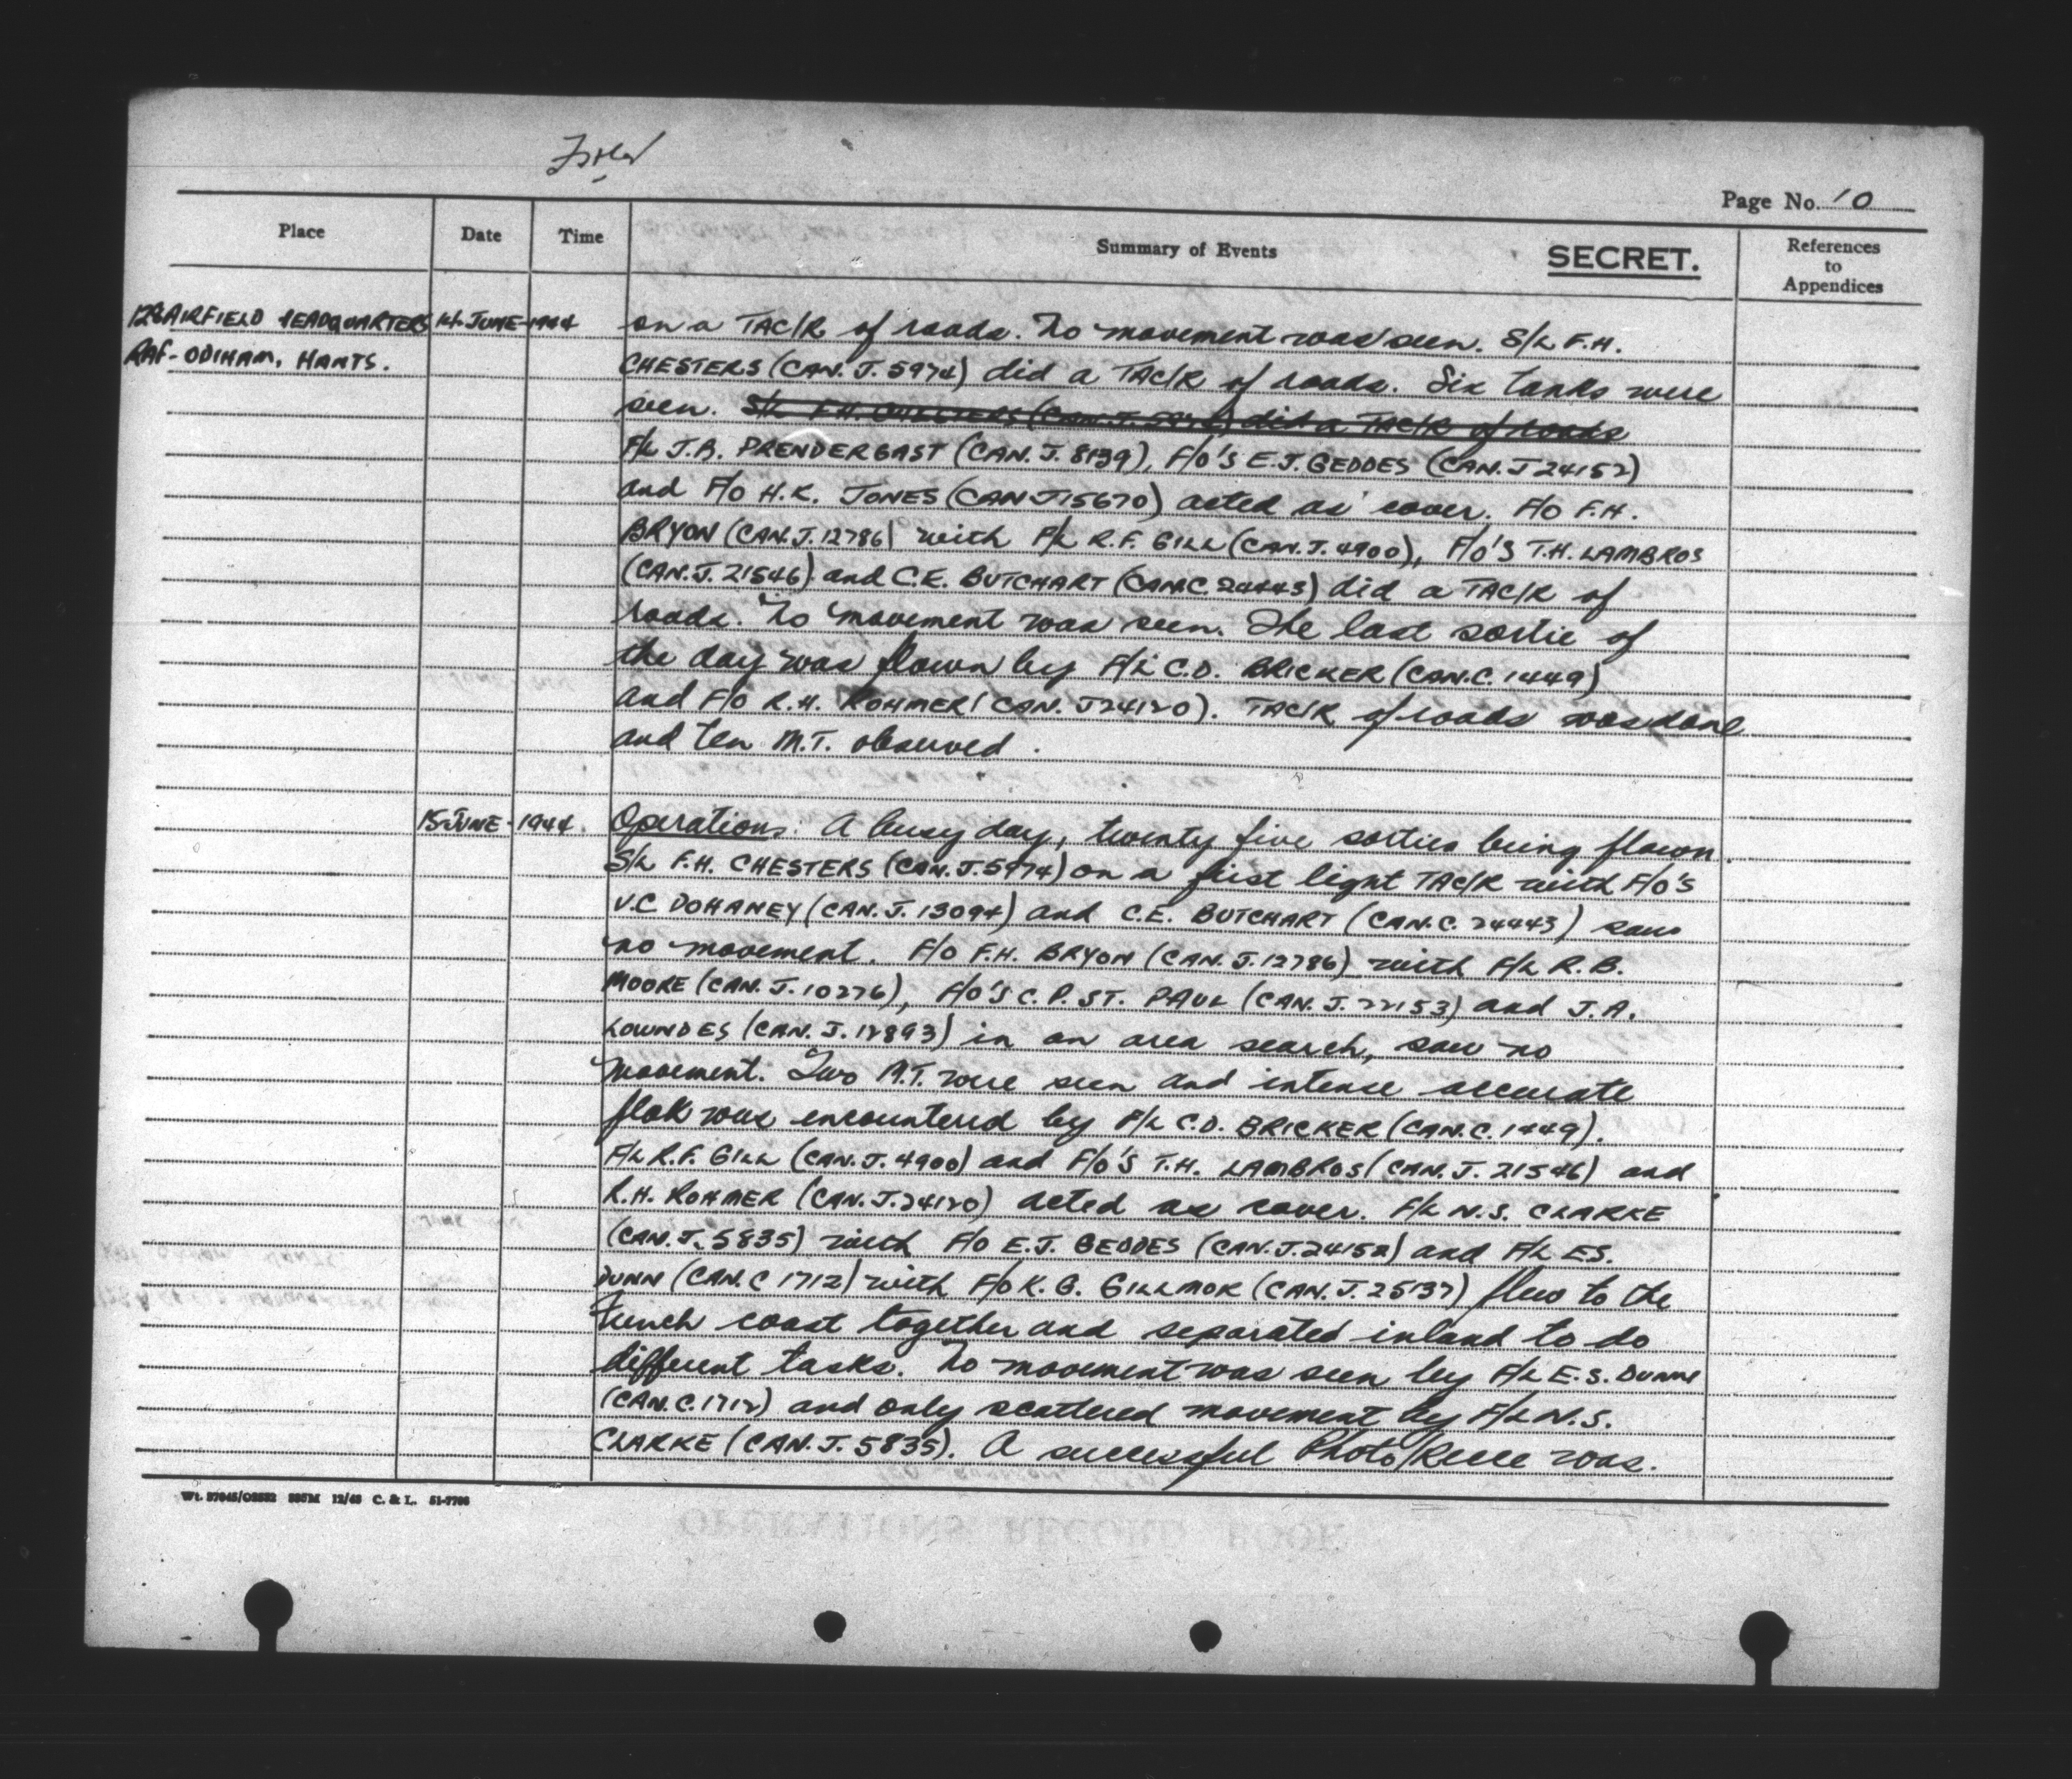 Page No. 10
Place Date Time Summary of Events SECRET. References to Appendices
128 AIRFIELD HEADQUARTERS 14-JUNE-1944 on a TAC/R of roads. No movement was seen. S/L F.H.
RAF-ODIHAM, HANTS. CHESTERS (CAN. J. 5974) did a TAC/R of roads. Six tanks were
seen. S/L F.H. CHESTERS (CAN. J. 5974) did a TAC/R of roads
F/L J.B. PRENDERGAST (CAN. J. 8139), F/O'S E.J. GEDDES (CAN. J 24152)
and F/O H.K. JONES (CAN J 15670) acted as cover. F/O F.H.
BRYON (CAN. J. 12786) with F/L R.F. GILL (CAN. J. 4900), F/O'S T.H. LAMBROS
(CAN. J. 21546) and C.E. BUTCHART (CAN. C. 24443) did a TAC/R of
roads. No movement was seen. The last sortie of
the day was flown by F/L C.D. BRICKER (CAN. C. 1449)
and F/O R.H. ROHMER (CAN. J 24120). TAC/R of roads was done
and ten M.T. observed.
15-JUNE-1944. Operations. A busy day, twenty five sorties being flown.
S/L F.H. CHESTERS (CAN. J. 5974) on a first light TAC/R with F/O'S
V.C DOHANEY (CAN. J. 13094) and C.E. BUTCHART (CAN. C. 24443) saw
no movement. F/O F.H. BRYON (CAN. J. 12786) with F/L R.B.
MOORE (CAN. J. 10276), F/O'S C.P. ST. PAUL (CAN. J. 22153) and J.A.
LOWNDES (CAN. J. 12893) in an area search, saw no
movement. Two M.T. were seen and intense accurate
flak was encountered by F/L C.D. BRICKER (CAN. C. 1449).
F/L R.F. GILL (CAN. J. 4900) and F/O'S T.H. LAMBROS (CAN. J. 21546) and
R.H. ROHMER (CAN. J. 24120) acted as cover. F/L N.S. CLARKE
(CAN. J. 5835) with F/O E.J. GEDDES (CAN. J. 24152) and F/L E.S.
DUNN (CAN. C 1712) with F/O K.G. GILLMOR (CAN. J. 25137) flew to the
French coast together and separated inland to do
different tasks. No movement was seen by F/L E.S. DUNN
(CAN. C. 1712) and only scattered movement by F/L N.S.
CLARKE (CAN. J. 5835). A successful Photo/Recce was.
C. & L.